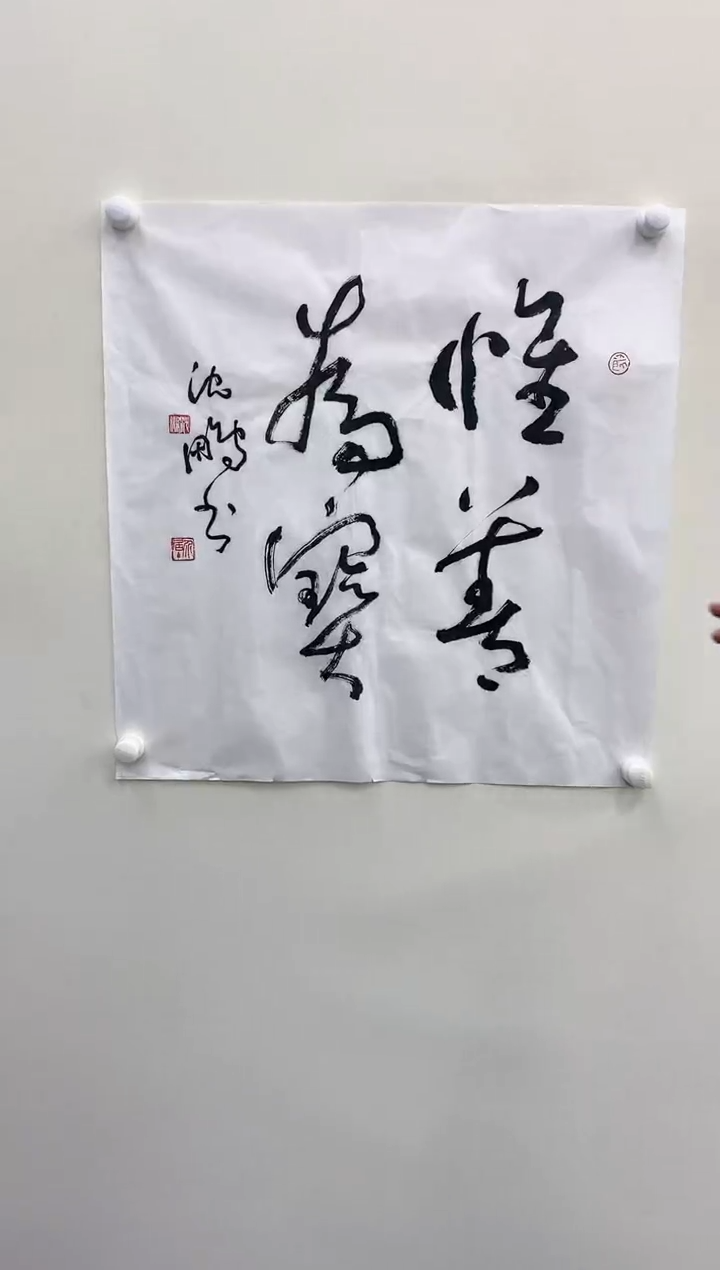 惟善
為寶
沈鵬书